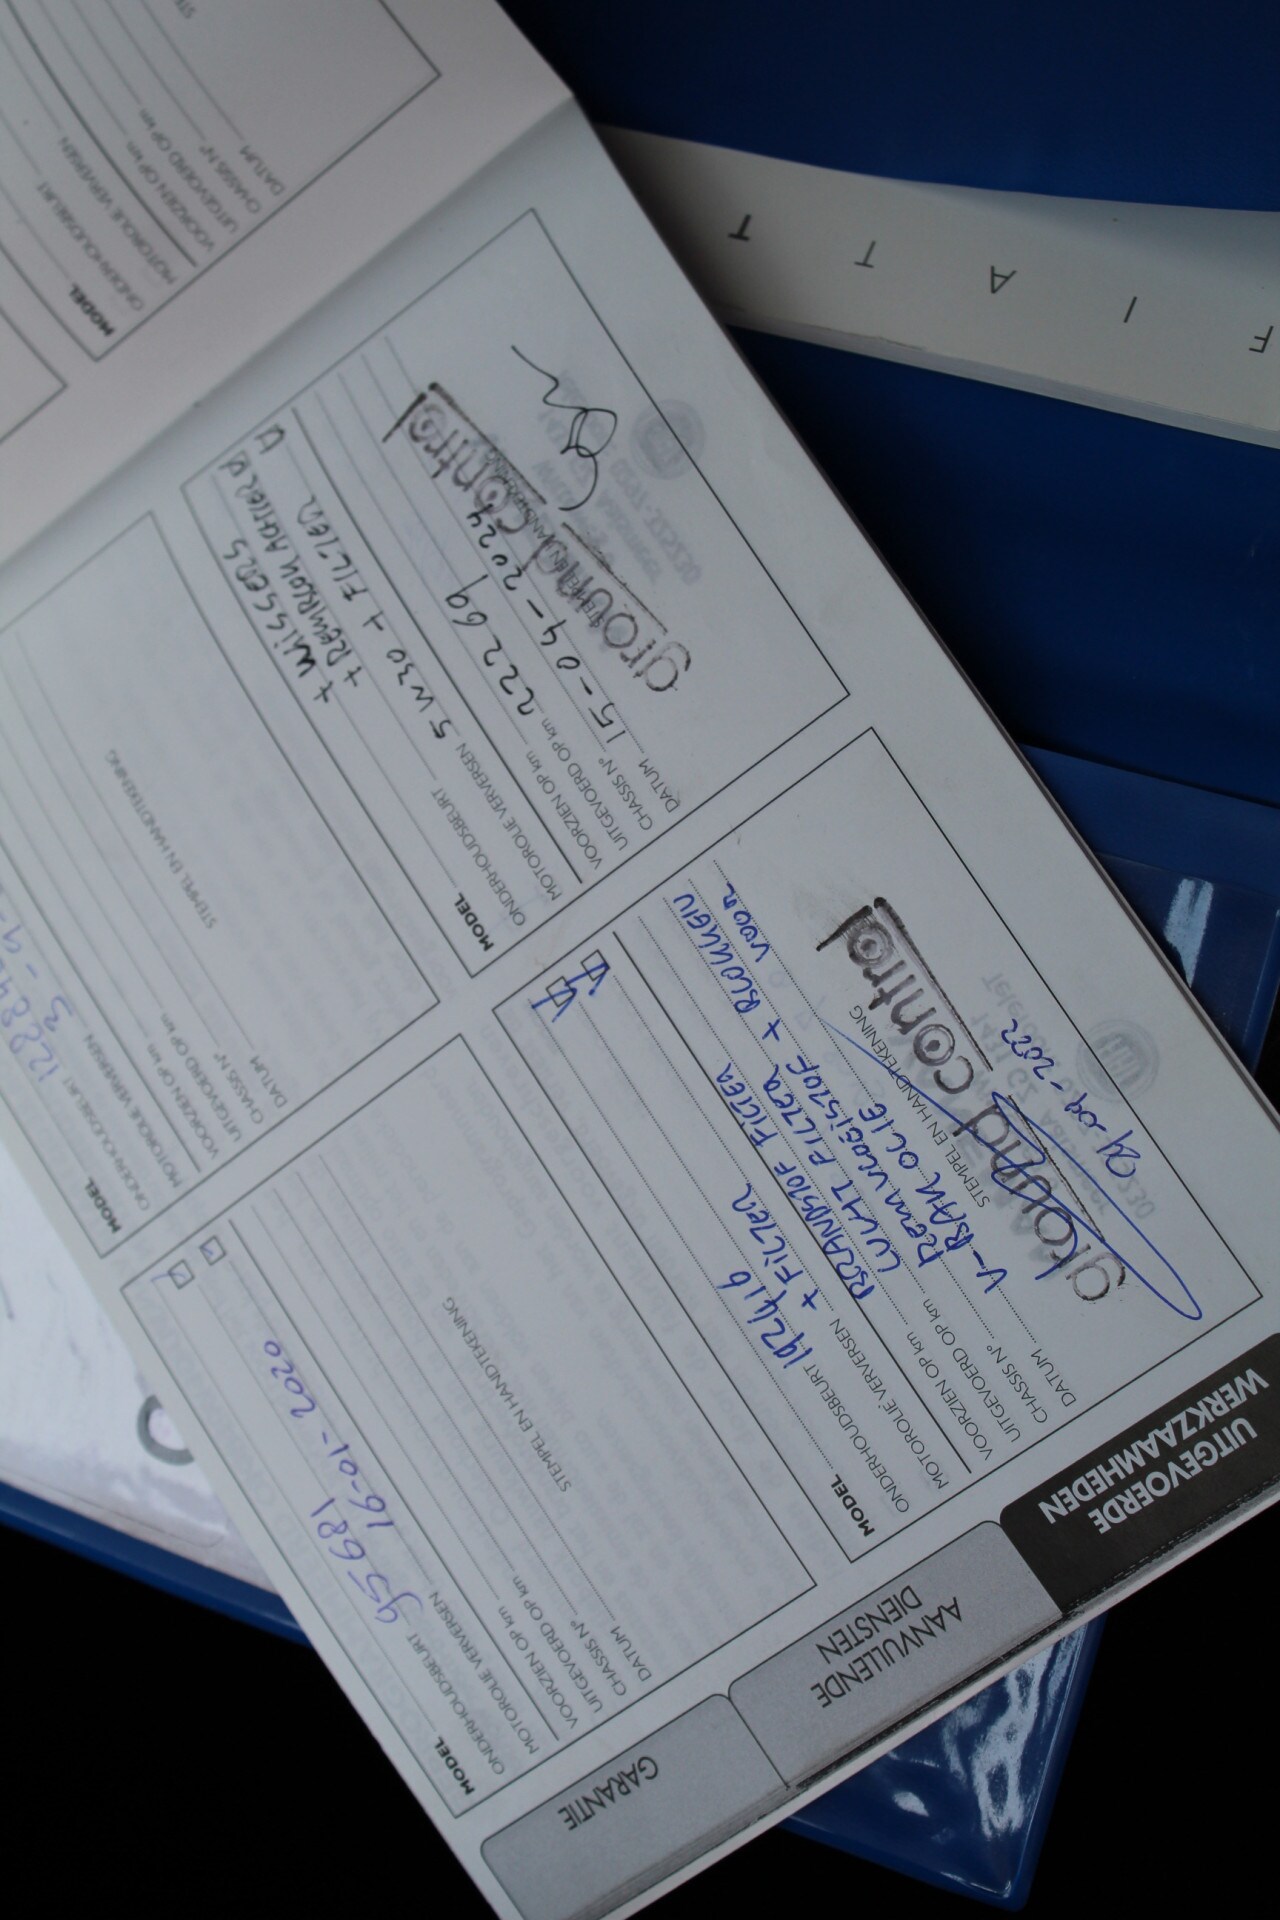 FIAT T
UITGEVOERDE
WERKZAAMHEDEN
AANVULLENDE
DIENSTEN
GARANTIE
MODEL
ONDERHOUDSBEURT 192416
MOTOROLIE VERVERSEN + FILTER
VOORZIEN OP km BRANDSTOF FILTER
LUCHT FILTER +
UITGEVOERD OP km REMVLOEISTOF +
CHASSIS N° V-BAK OLIE
DATUM
STEMPEL EN HANDTEKENING
ground control
04-2022
MODEL
ONDERHOUDSBEURT 95681
MOTOROLIE VERVERSEN 16-01-2020
VOORZIEN OP km
UITGEVOERD OP km
CHASSIS N°
DATUM
STEMPEL EN HANDTEKENING
MODEL
+ WISSERS
ONDERHOUDSBEURT
MOTOROLIE VERVERSEN 5W30 + FILTER
VOORZIEN OP km
UITGEVOERD OP km 222269
CHASSIS N°
DATUM 15-04-2024
ground control
MODEL
ONDERHOUDSBEURT
MOTOROLIE VERVERSEN
VOORZIEN OP km
UITGEVOERD OP km
CHASSIS N°
DATUM
STEMPEL EN HANDTEKENING
MODEL
ONDERHOUDSBEURT
MOTOROLIE VERVERSEN
VOORZIEN OP km
UITGEVOERD OP km
CHASSIS N°
DATUM